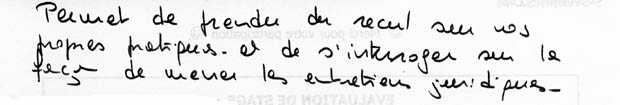 Permet de prendre du recul sur nos
propres pratiques. et de s'interroger sur la
façon de mener les entretiens juridiques.